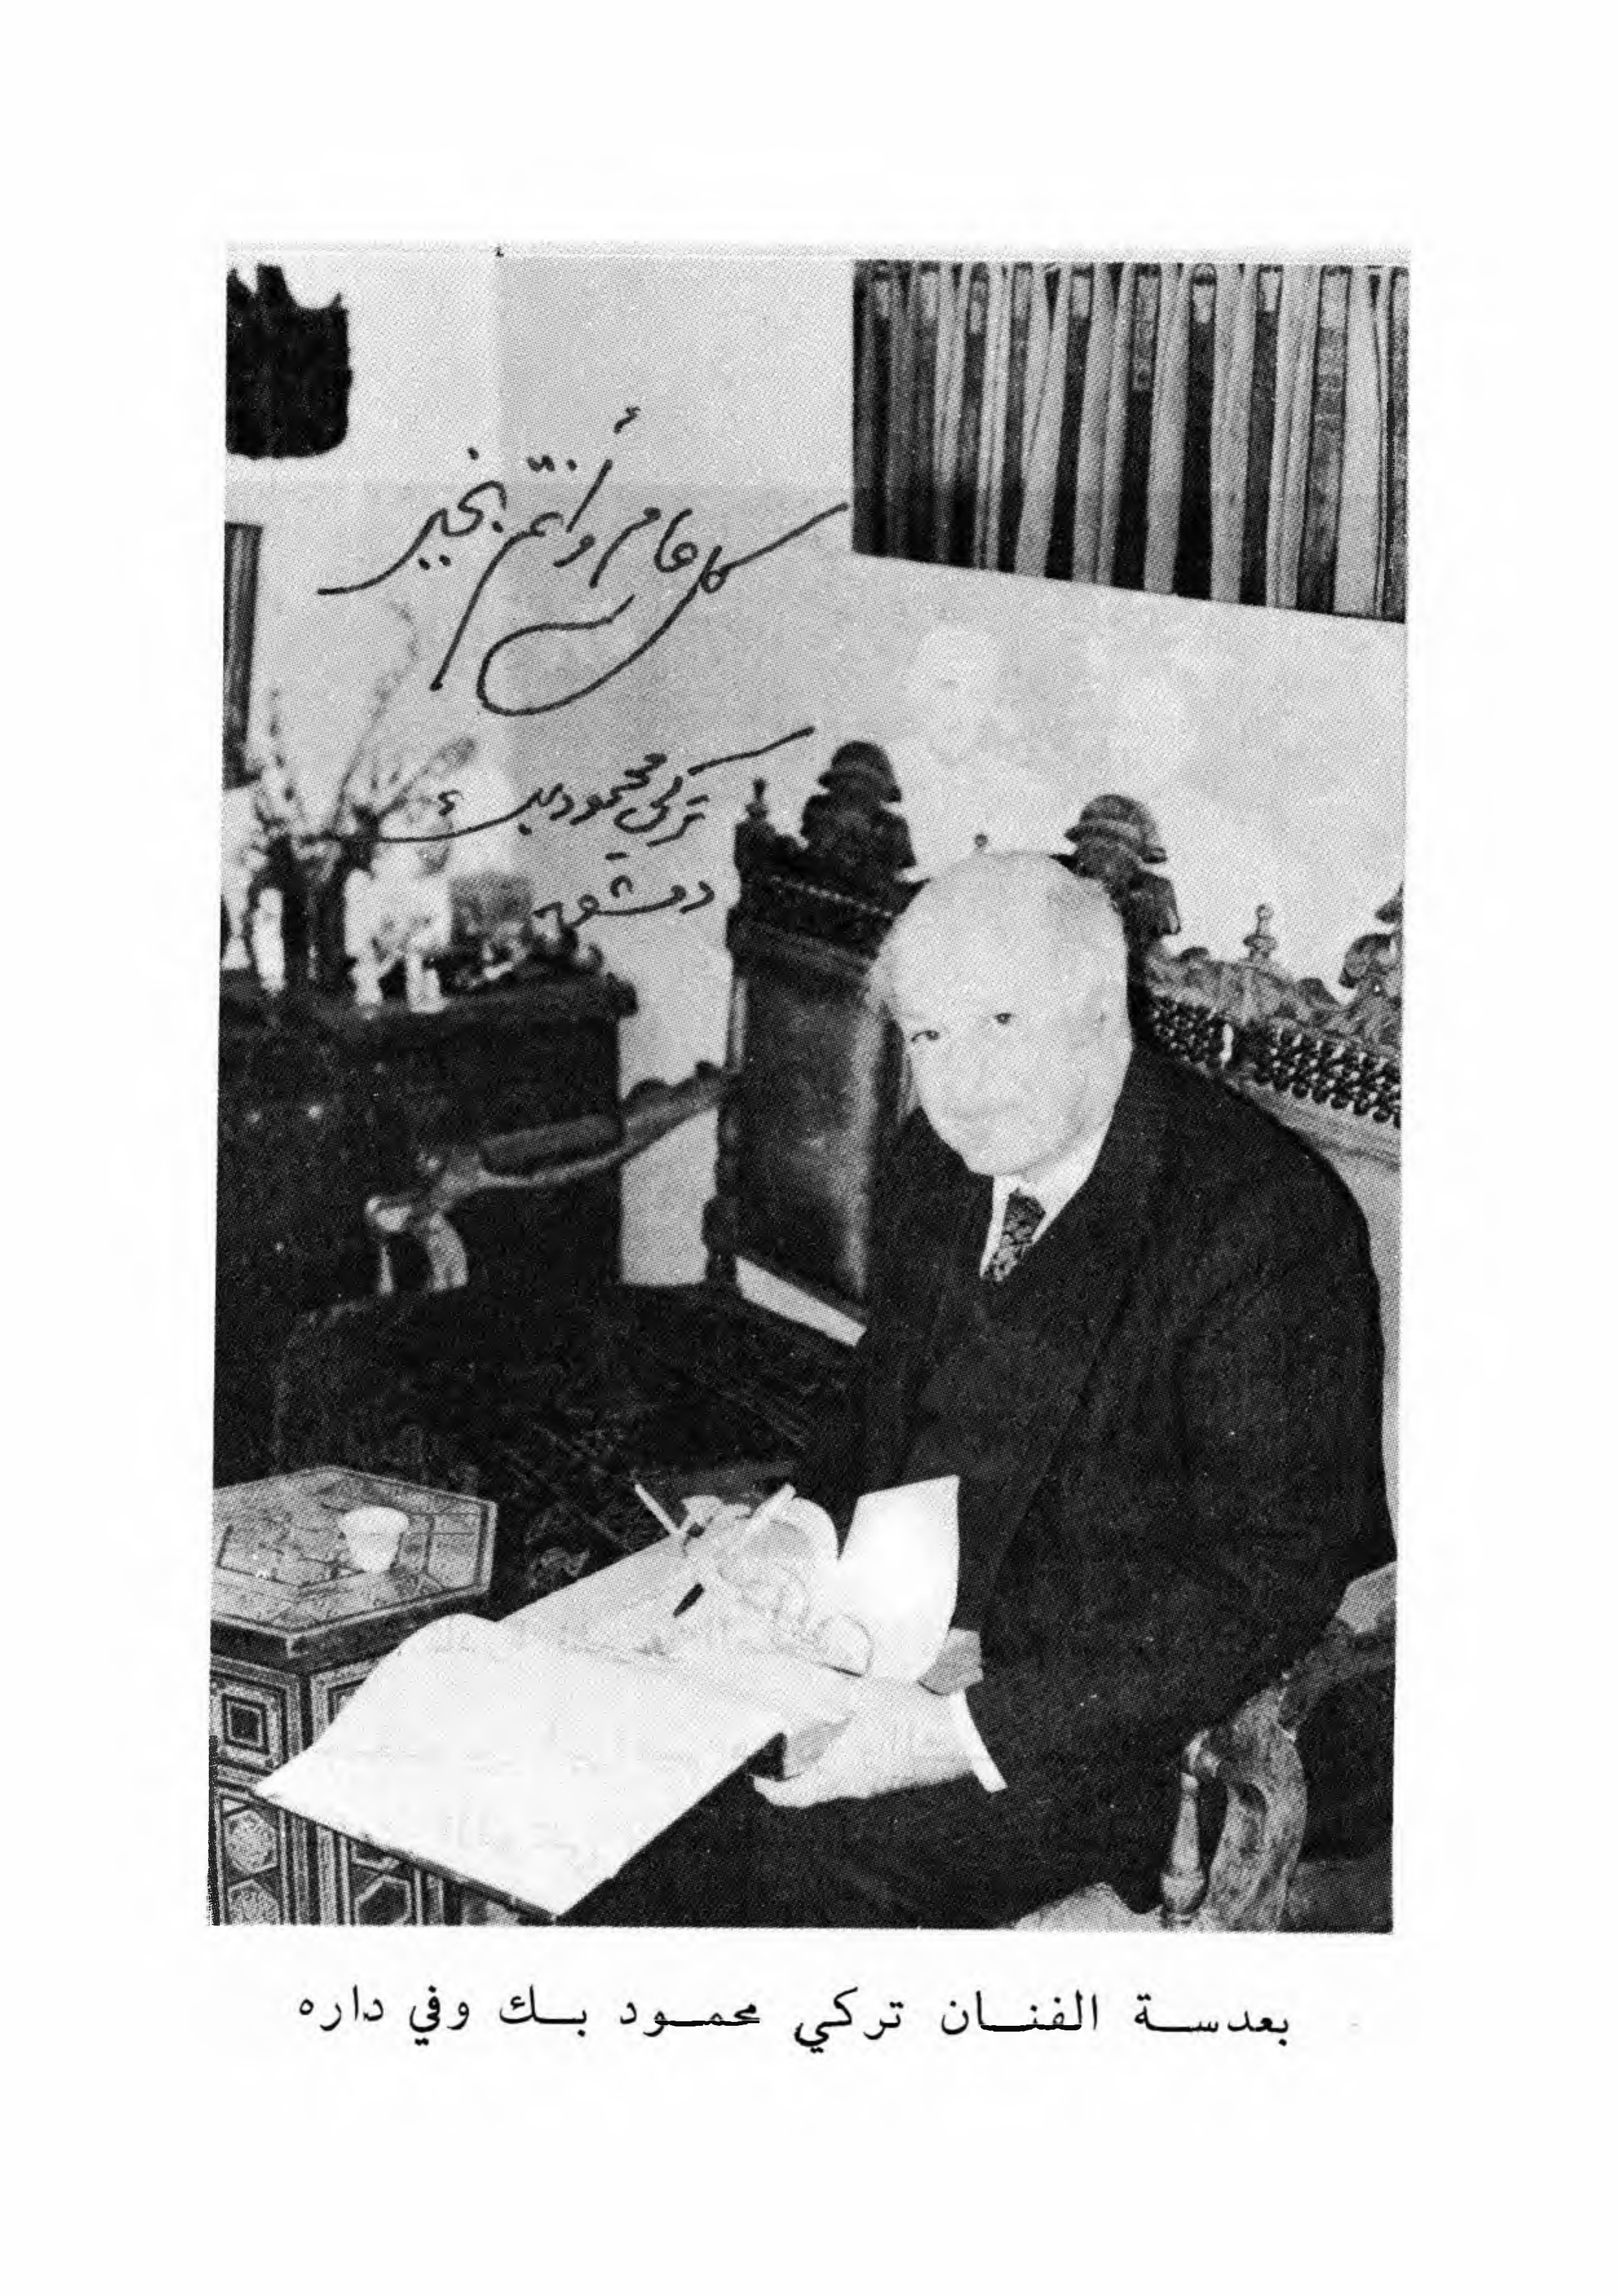 كل عام وأنتم بخير
تركي محمود بك
دمشق
بعدسة الفنان تركي محمود بك وفي داره